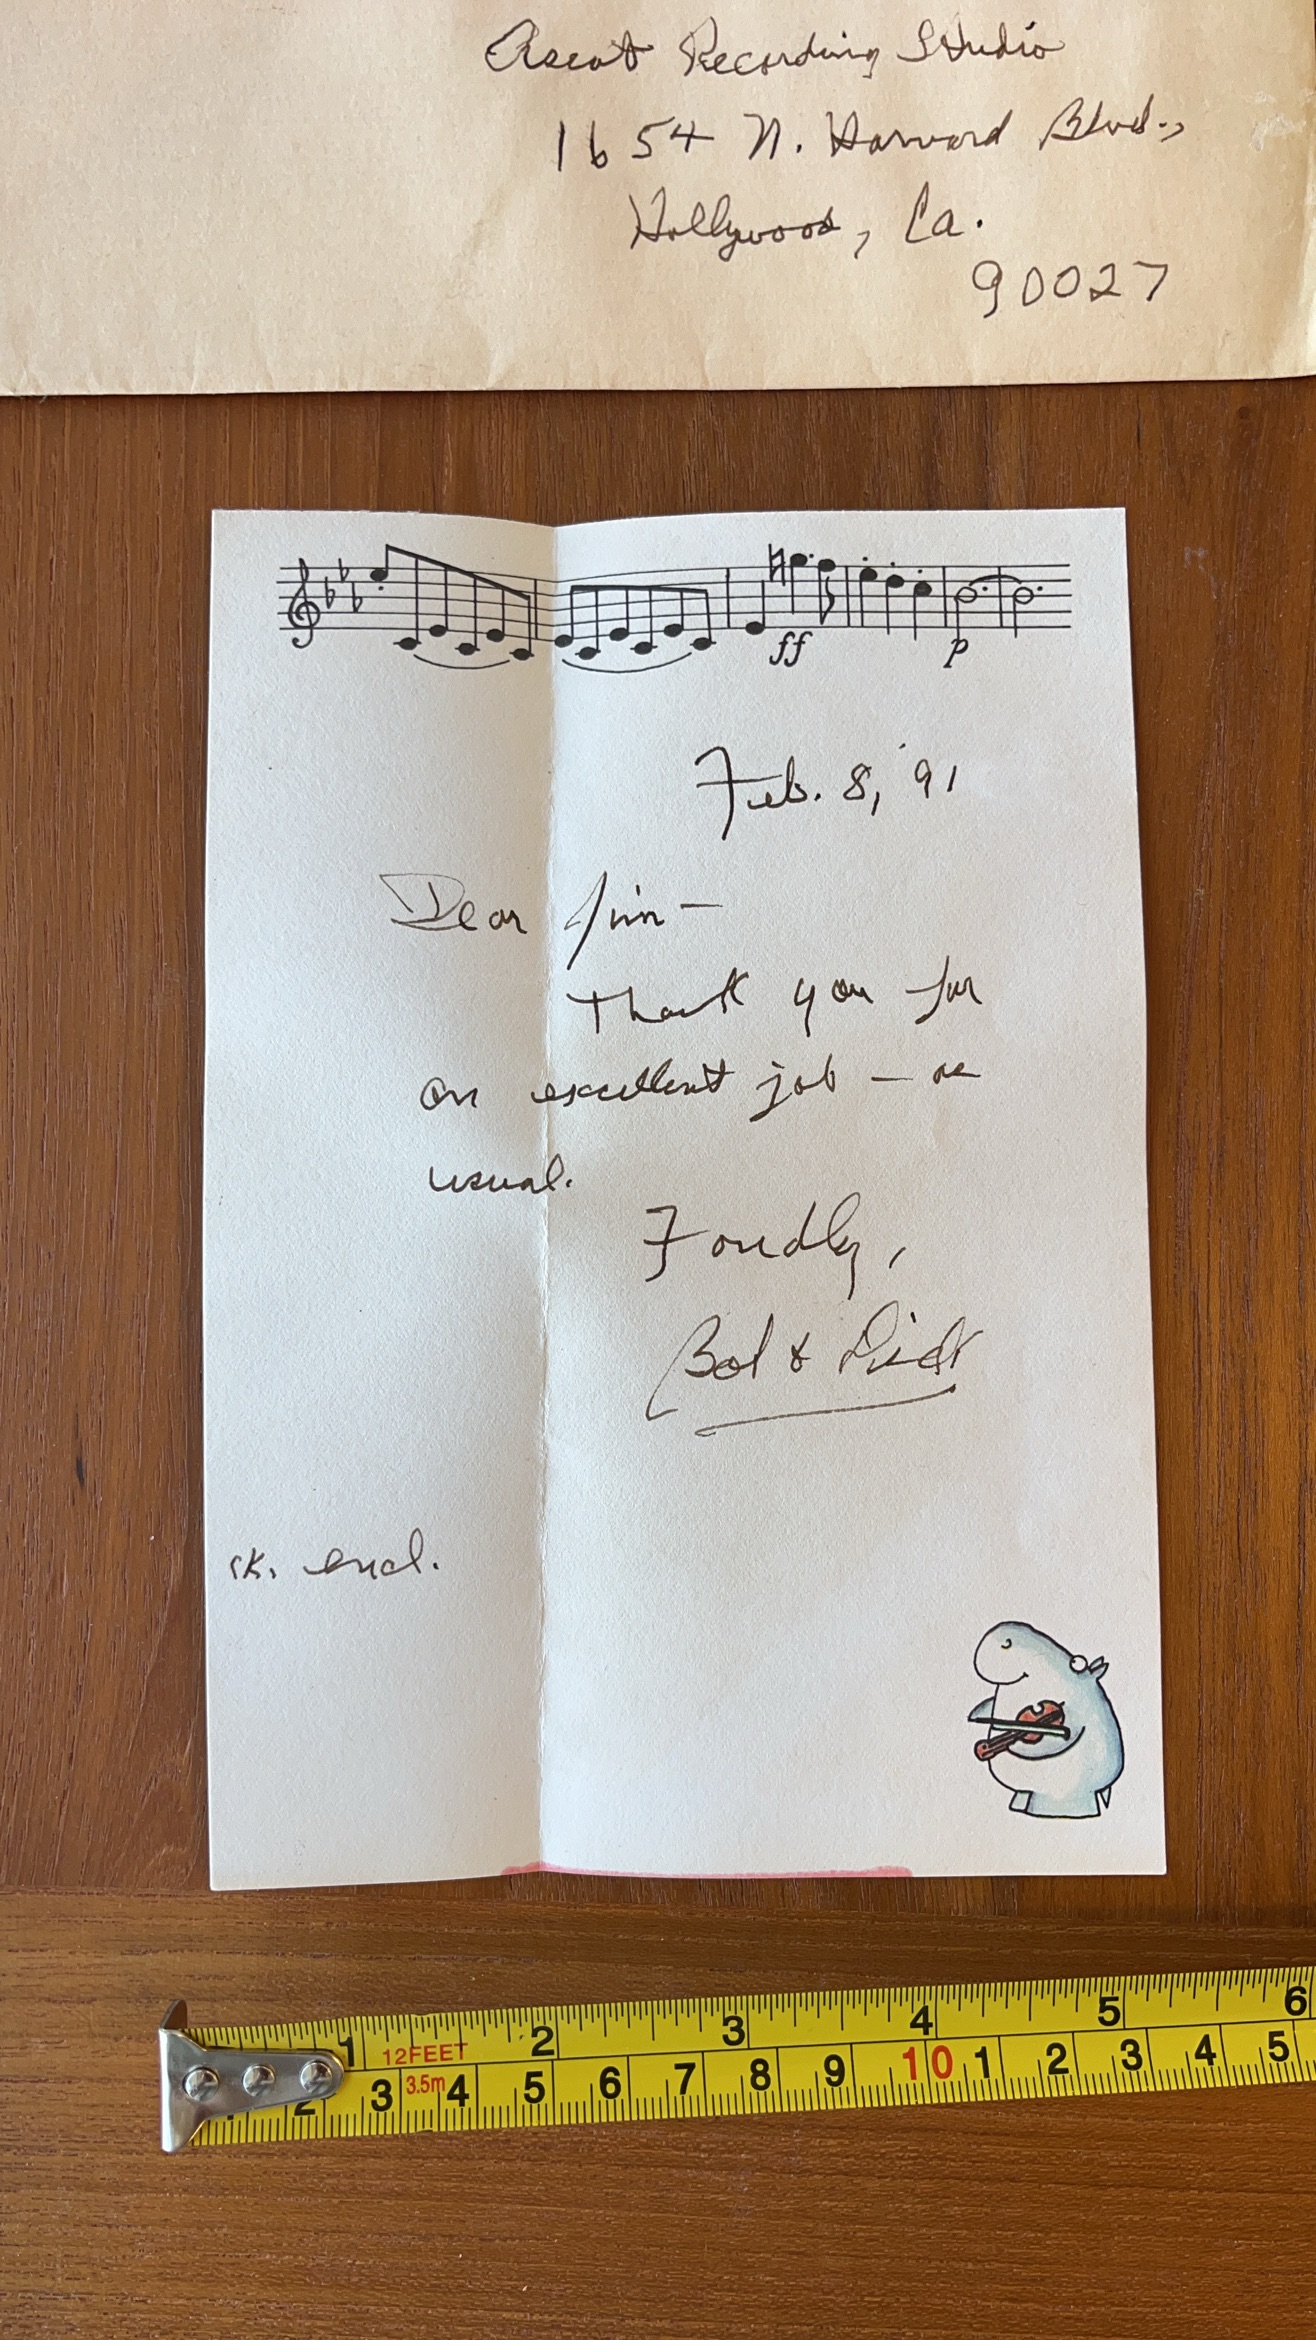 Ascot Recording Studio
1654 N. Harvard Blvd.,
Hollywood, Ca.
90027
ff p
Feb. 8, '91
Dear Jim—
Thank you for
an excellent job — as
usual.
Fondly,
Bob & Dick
ck. encl.
1 2 3 4 5 6
12FEET
3.5m
1 2 3 4 5 6 7 8 9 10 1 2 3 4 5